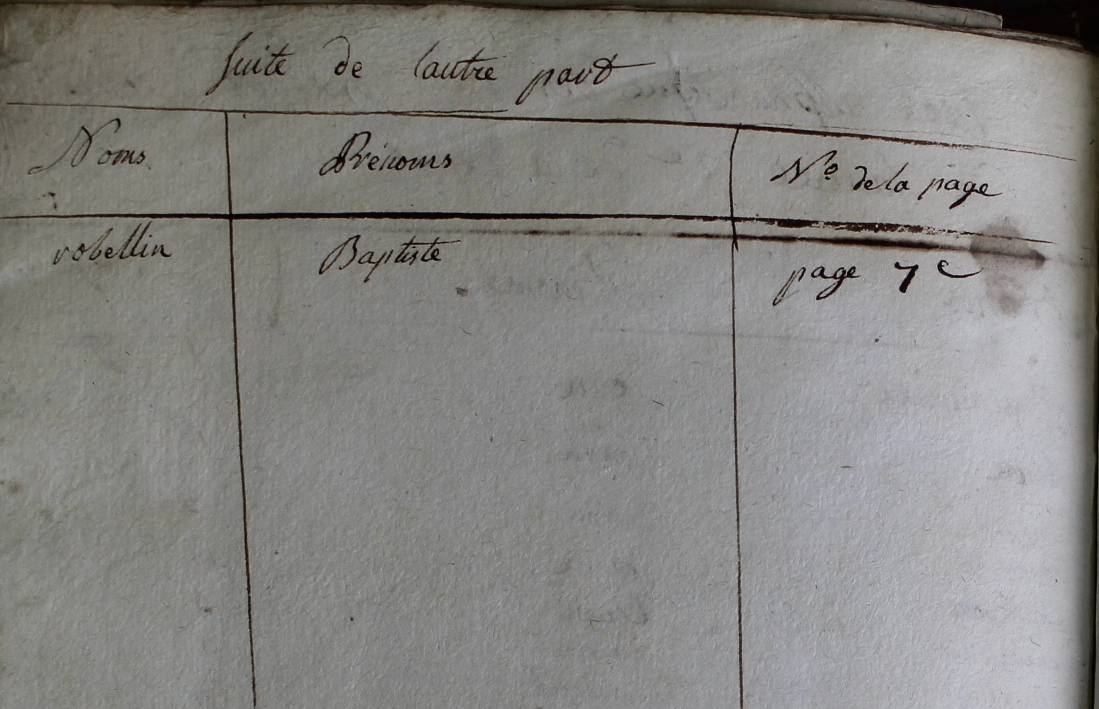 suite de lautre part
Noms Prénoms No de la page
robellin Baptiste page 7e